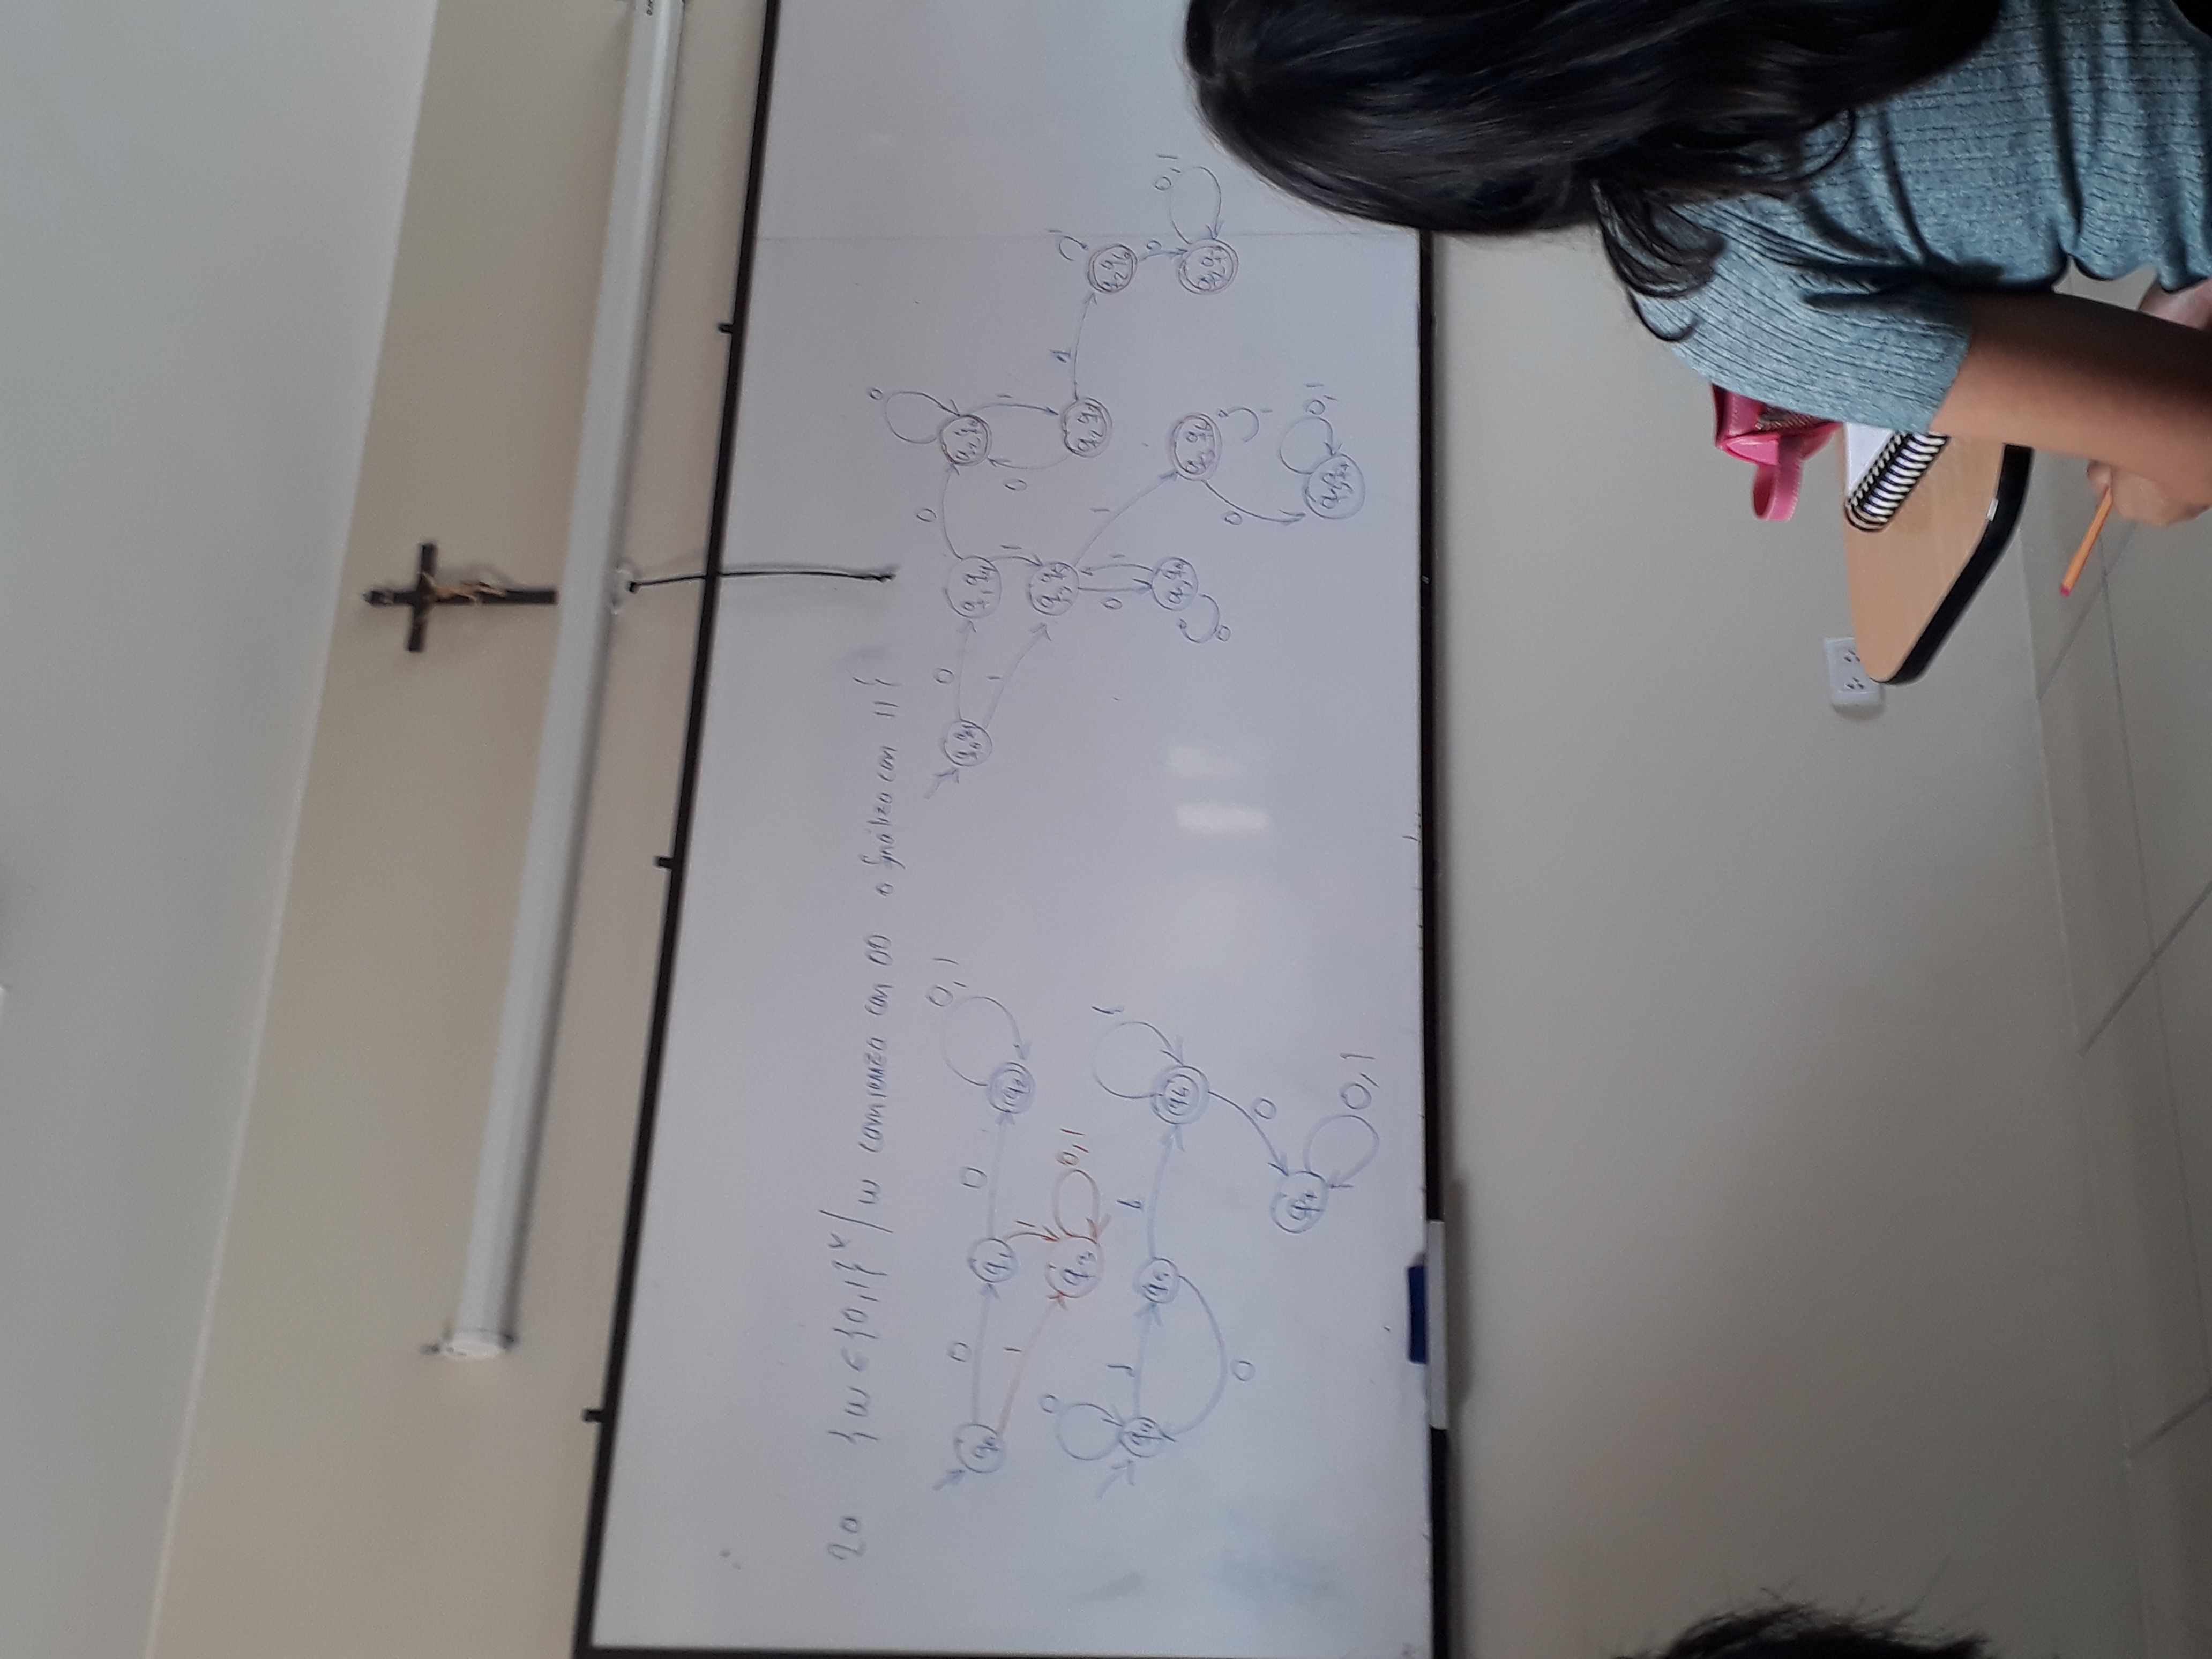 2a {w ∈ {0,1}* / w comienza con 00 o finaliza con 11}
0 0 0,1
q0 q1 q2
1 1
q3 0,1
0 1 1 1
q4 q5 q6
0 0
q7 0,1
0 0 0
q0q4 q1q4 q2q4
1 1 0 1
q3q5 q2q5 1 q2q6 1
0 1 1 0
q3q4 q3q6 q2q7 0,1
0 0 1
q3q7 0,1